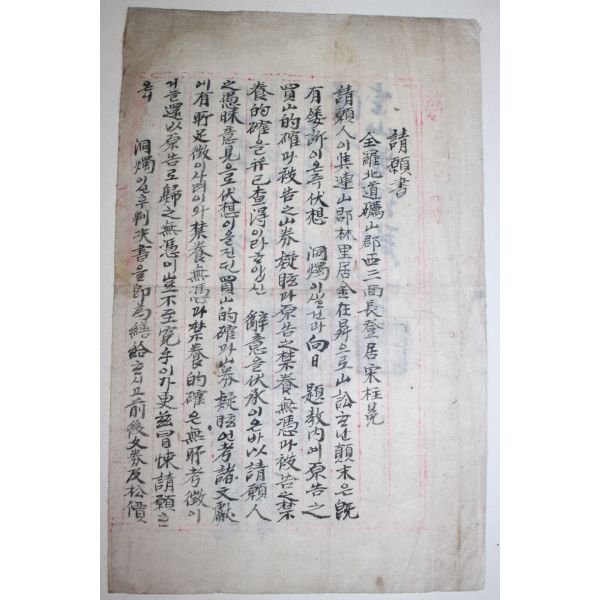 請願書
全羅北道礪山郡西三面長登居宋柱
請願人이與連山郡林里居金在昇으로山訟之顛末은旣
有倭訴이온즉伏想 洞燭이실건과向日 題敎內에原告之
買山的確과被告之山券疑眩과原告之禁養無憑과被告之禁
養的確을并已查得이라하압신 辭意을伏承이온바以請願人
之愚昧意見으로伏想이온則買山的確과山券疑眩은考諸文獻
에有所足徵이사려이와禁養無憑과禁養的確은無所考徵이
거늘還以原告로歸之無憑이豈不至寃乎이가更玆冒悚請願하
오니 洞燭이신후判決書을即為繕給하시고前後文券及松價